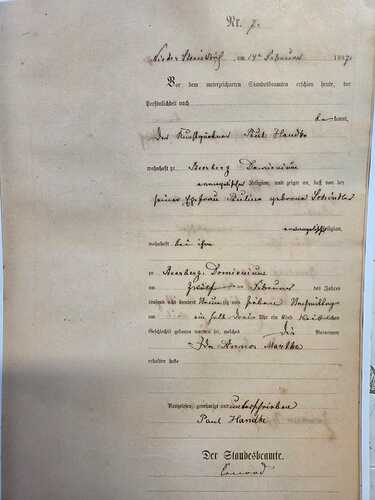 Nr. 7.
Nieder Steinkirch am 14ten Februar 1897.
Vor dem unterzeichneten Standesbeamten erschien heute, der
Persönlichkeit nach
be kannt,
der Kunstgärtner Paul Handke
wohnhaft zu Beerberg Dominium
evangelischer Religion, und zeigte an, daß von der
seiner Ehefrau Pauline geborene
evangelischer Religion,
wohnhaft bei ihm
zu Beerberg Dominium
am Februar des Jahres
tausend acht hundert neunzig und sieben Nachmittags
um ein halb drei Uhr ein Kind weiblichen
Geschlechts geboren worden sei, welches die Vornamen
Ida Anna Martha
erhalten habe
Vorgelesen, genehmigt und unterschrieben
Paul Handke
Der Standesbeamte.
Conrad